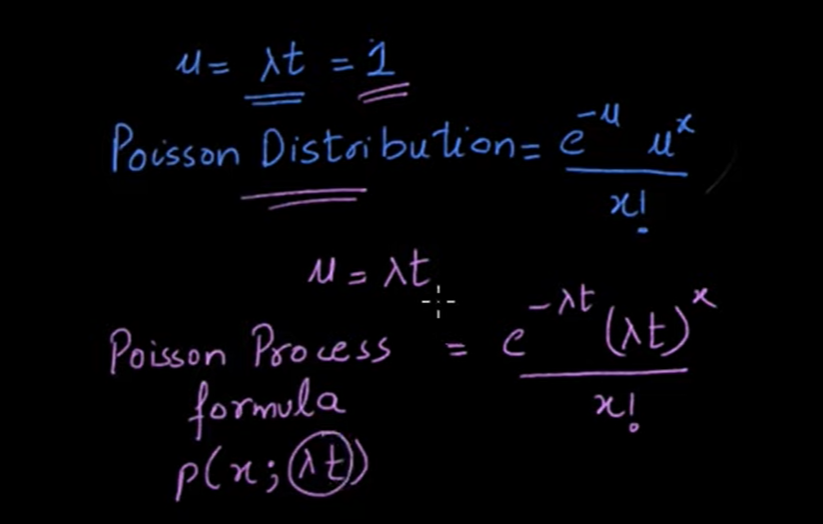 μ = λt = 1
Poisson Distribution = e^-μ μ^x / x!
μ = λt
Poisson Process formula = e^-λt (λt)^x / x!
p(x; λt)